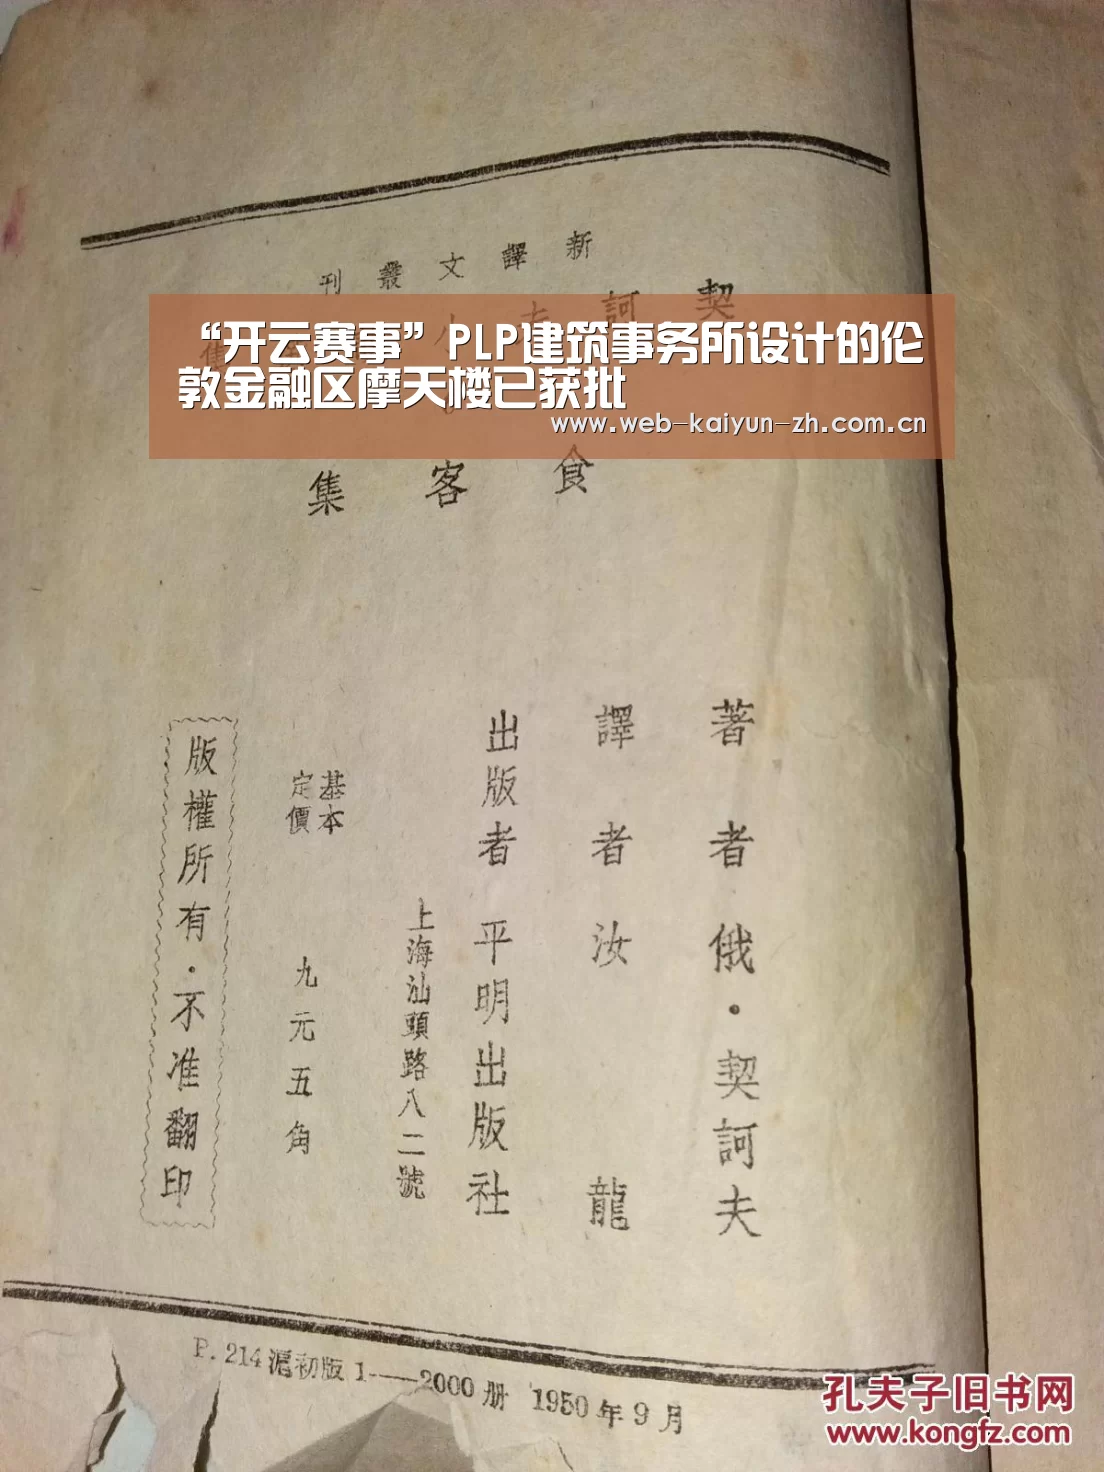 新譯文叢刊
契訶夫小
集
“开云赛事”PLP建筑事务所设计的伦
敦金融区摩天楼已获批
www.web-kaiyun-zh.com.cn
食客集
著者 俄·契訶夫
譯者 汝龍
出版者 平明出版社
上海汕頭路八二號
基本
定價
九元五角
版權所有·不准翻印
P.214 滬初版 1——2000册 1950年9月
孔夫子旧书网
www.kongfz.com